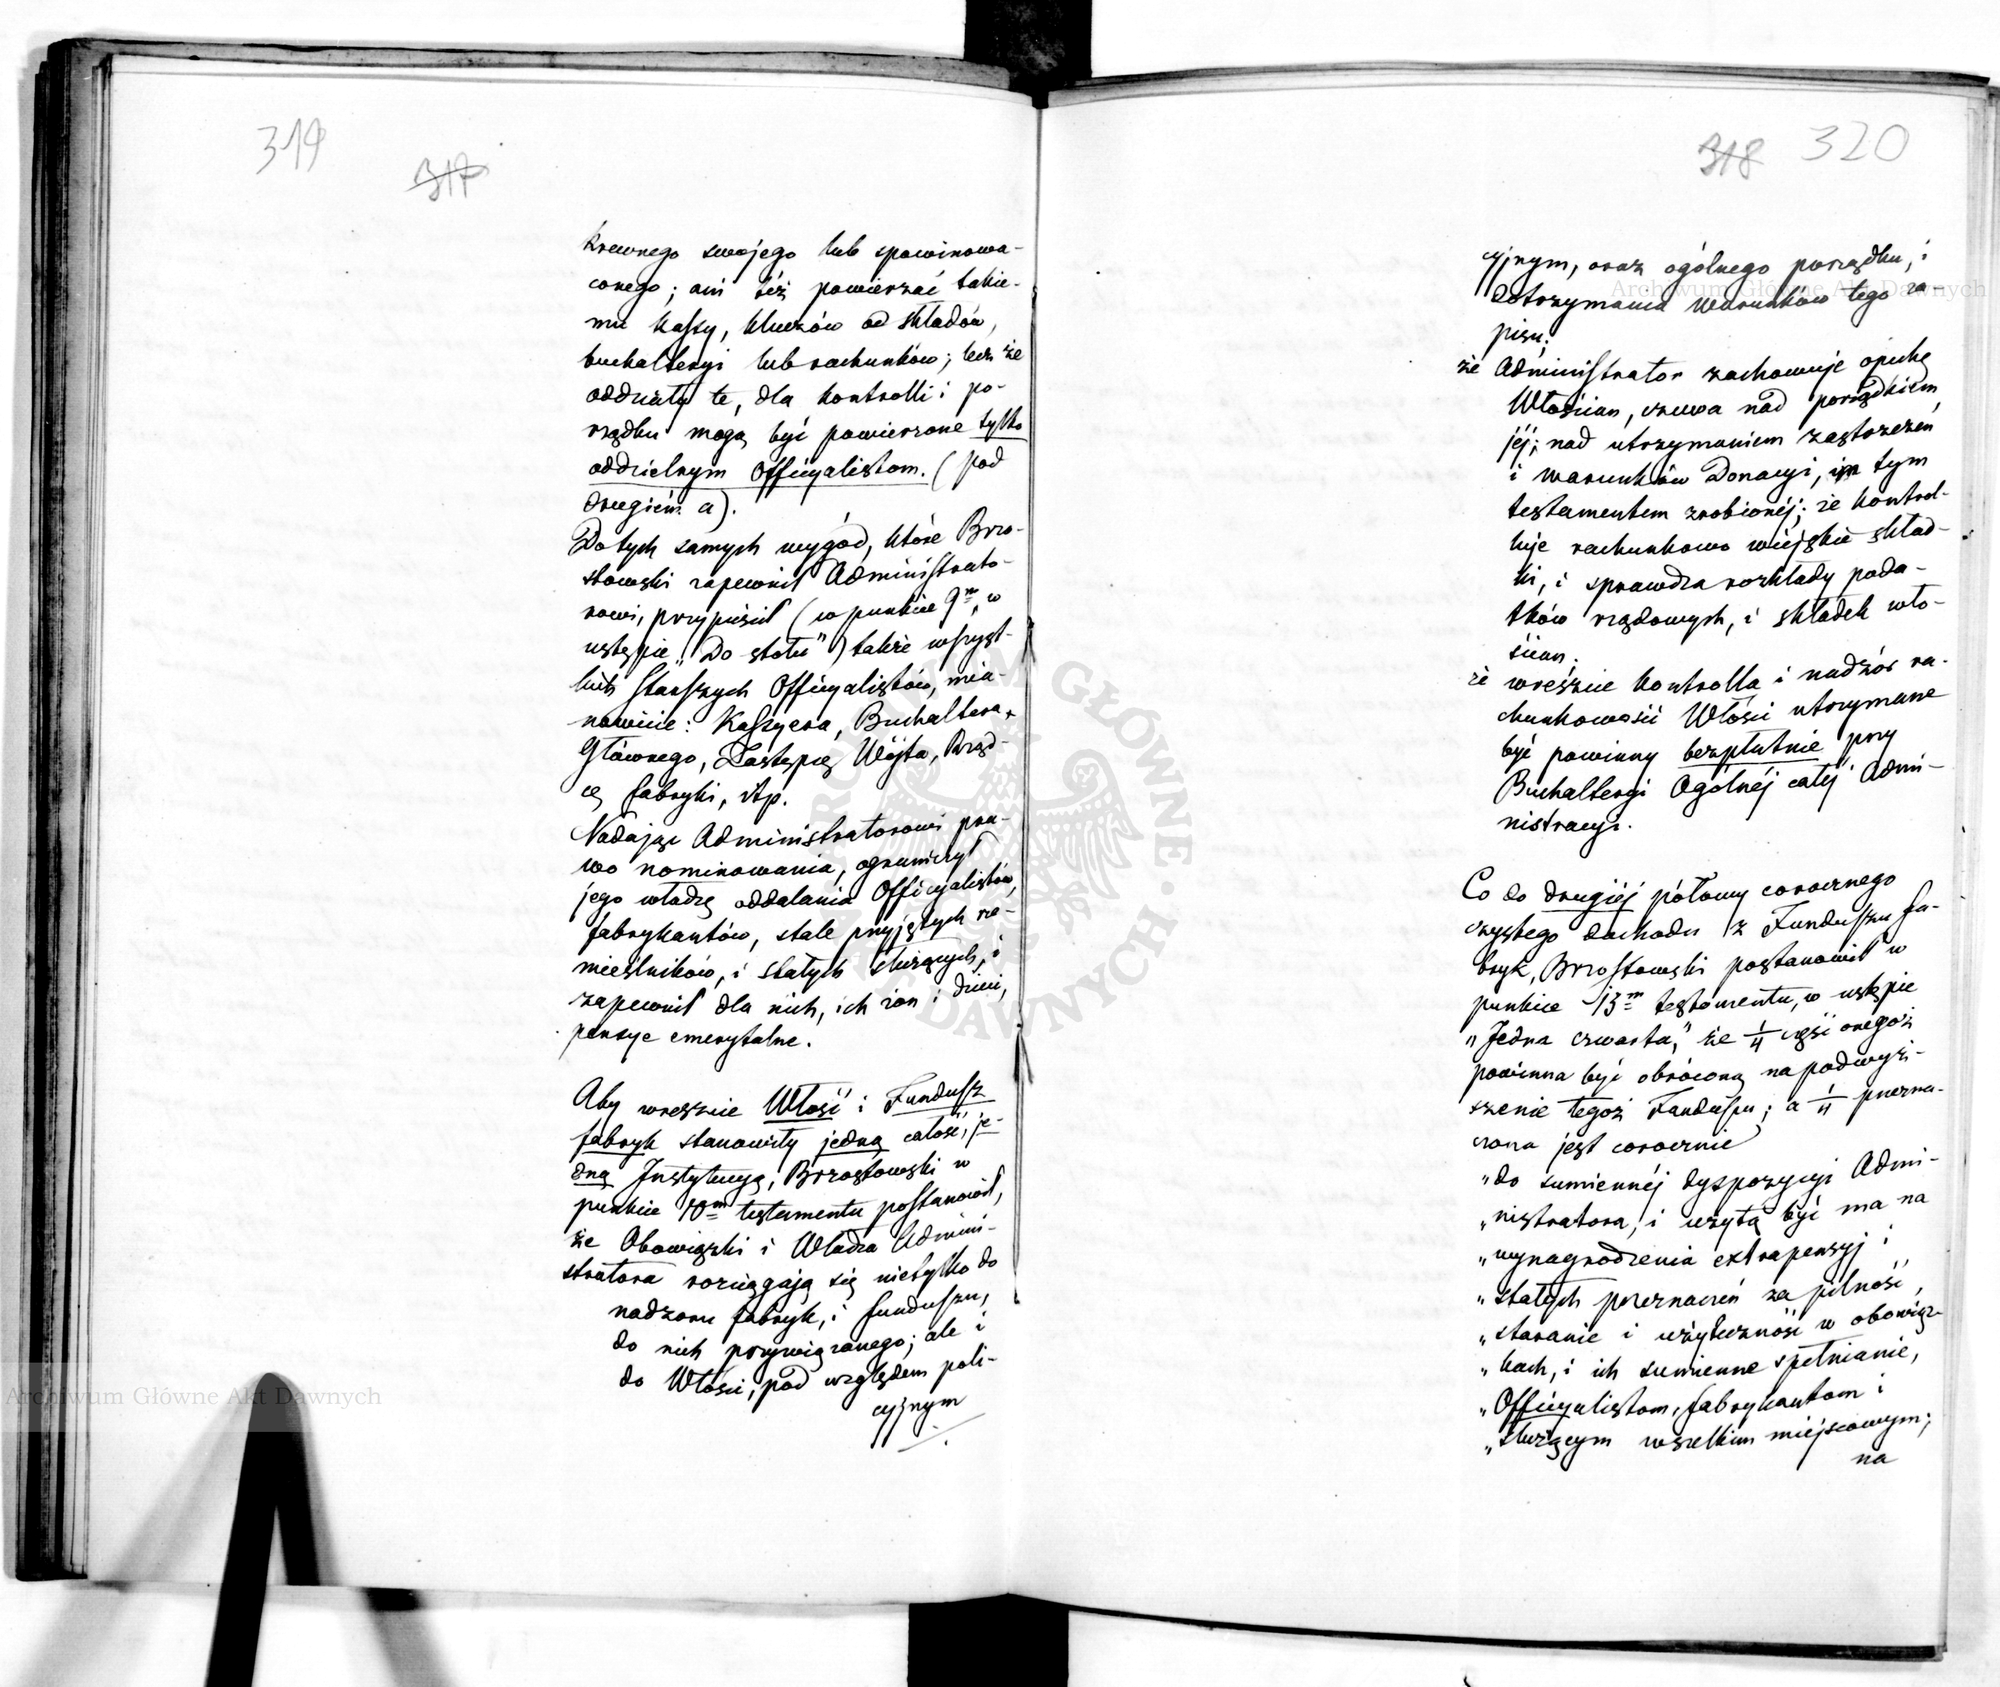 319
317
krewnego swojego lub spowinowa-
conego; ani też powierzać takie-
mu kassy, kluczów od składów,
buchalteryi lub rachunków; lecz że
oddziały te, dla kontrolli i po-
rządku mogą być powierzone tylko
oddzielnym Officyalistom. (pod
drugiém a).
Do tych samych wygód, które Brzo-
stowski zapewnił Administrato-
rowi, przypuścił (w punkcie 9m, w
ustępie "Do stołu") także wszyst-
kich starszych Officyalistów, mia-
nowicie: Kassyera, Buchaltera
Głównego, Zastępcę Wójta, Rząd-
cę fabryki, itp.
Nadając Administratorowi pra-
wo nominowania, ograniczył
jego władzę oddalania Officyalistów,
fabrykantów, stale przyjętych rze-
mieślników, i stałych służących, i
zapewnił dla nich, ich żon i dzieci,
pensye emerytalne.
Aby wreszcie Włość i Fundusz
fabryk stanowiły jedną całość, je-
dną Instytucyą, Brzostowski w
punkcie 10m testamentu postanowił,
że Obowiązki i Władza Admini-
stratora rozciągają się nietylko do
nadzoru fabryk, i funduszu,
do nich przywiązanego; ale i
do Włości, pod względem poli-
cyjnym
318 320
cyjnym, oraz ogólnego porządku, i
dotrzymania warunków tego za-
pisu;
że Administrator zachowuje opiekę
Włościan, czuwa nad porządkiem
jéj; nad utrzymaniem zastrzeżeń
i warunków Donacyi, tym
testamentem zrobionéj; że kontrol-
luje rachunkowo wiejskie skład-
ki, i sprawdza rozkłady poda-
tków rządowych, i składek wło-
ścian.
że wreszcie kontrolla i nadzór ra-
chunkowości Włości utrzymane
być powinny bezpłatnie przy
Buchalteryi Ogólnéj całéj Admi-
nistracyi.
Co do drugiéj połowy corocznego
czystego dochodu z Funduszu fa-
bryk, Brzostowski postanowił w
punkcie 13m testamentu, w ustępie
"Jedna czwarta," że 1/4 część onegoż
powinna być obróconą na podwyż-
szenie tegoż Funduszu; a 1/4 przezna-
czona jest corocznie
"do sumiennéj dyspozycyi Admi-
"nistratora, i użytą być ma na
"wynagrodzenia extrapensyj i
"stałych przeznaczeń za pilność,
"staranie i użyteczność w obowiąz-
"kach, i ich sumienne spełnianie,
"Officyalistom, fabrykantom i
"służącym wszelkim miejscowym;
na
Archiwum Główne Akt Dawnych
Archiwum Główne Akt Dawnych
ARCHIWUM GŁÓWNE AKT DAWNYCH